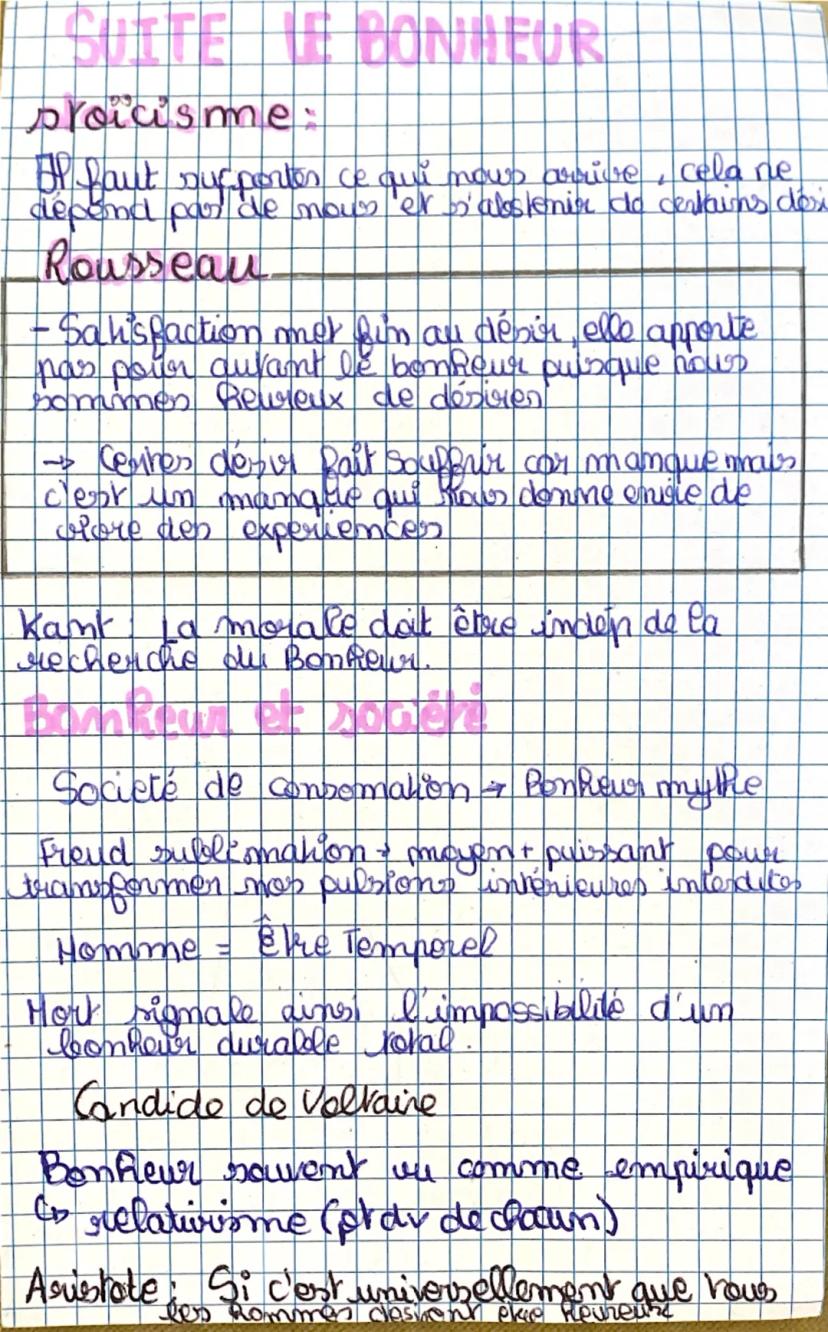 SUITE LE BONHEUR
stoïcisme:
Il faut supporter ce qui nous arrive, cela ne
dépend pas de nous et s'abstenir de certains dési
Rousseau
- Satisfaction met fin au désir, elle apporte
pas pour autant le bonheur puisque nous
sommes heureux de désirer
→ Certes désir fait souffrir car manque mais
c'est un manque qui nous donne envie de
vivre des experiences
Kant: La morale doit être indép de la
recherche du Bonheur.
Bonheur et société
Societé de consomation → Bonheur mythe
Freud sublimation → moyen + puissant pour
transformer nos pulsions intérieures interdites
Homme = Être Temporel
Mort signale ainsi l'impossibilité d'un
bonheur durable total.
Candide de Voltaire
Bonheur souvent vu comme empirique
↳ relativisme (pt dv de chacun)
Aristote: Si c'est universellement que tous
les hommes desirent être heureux